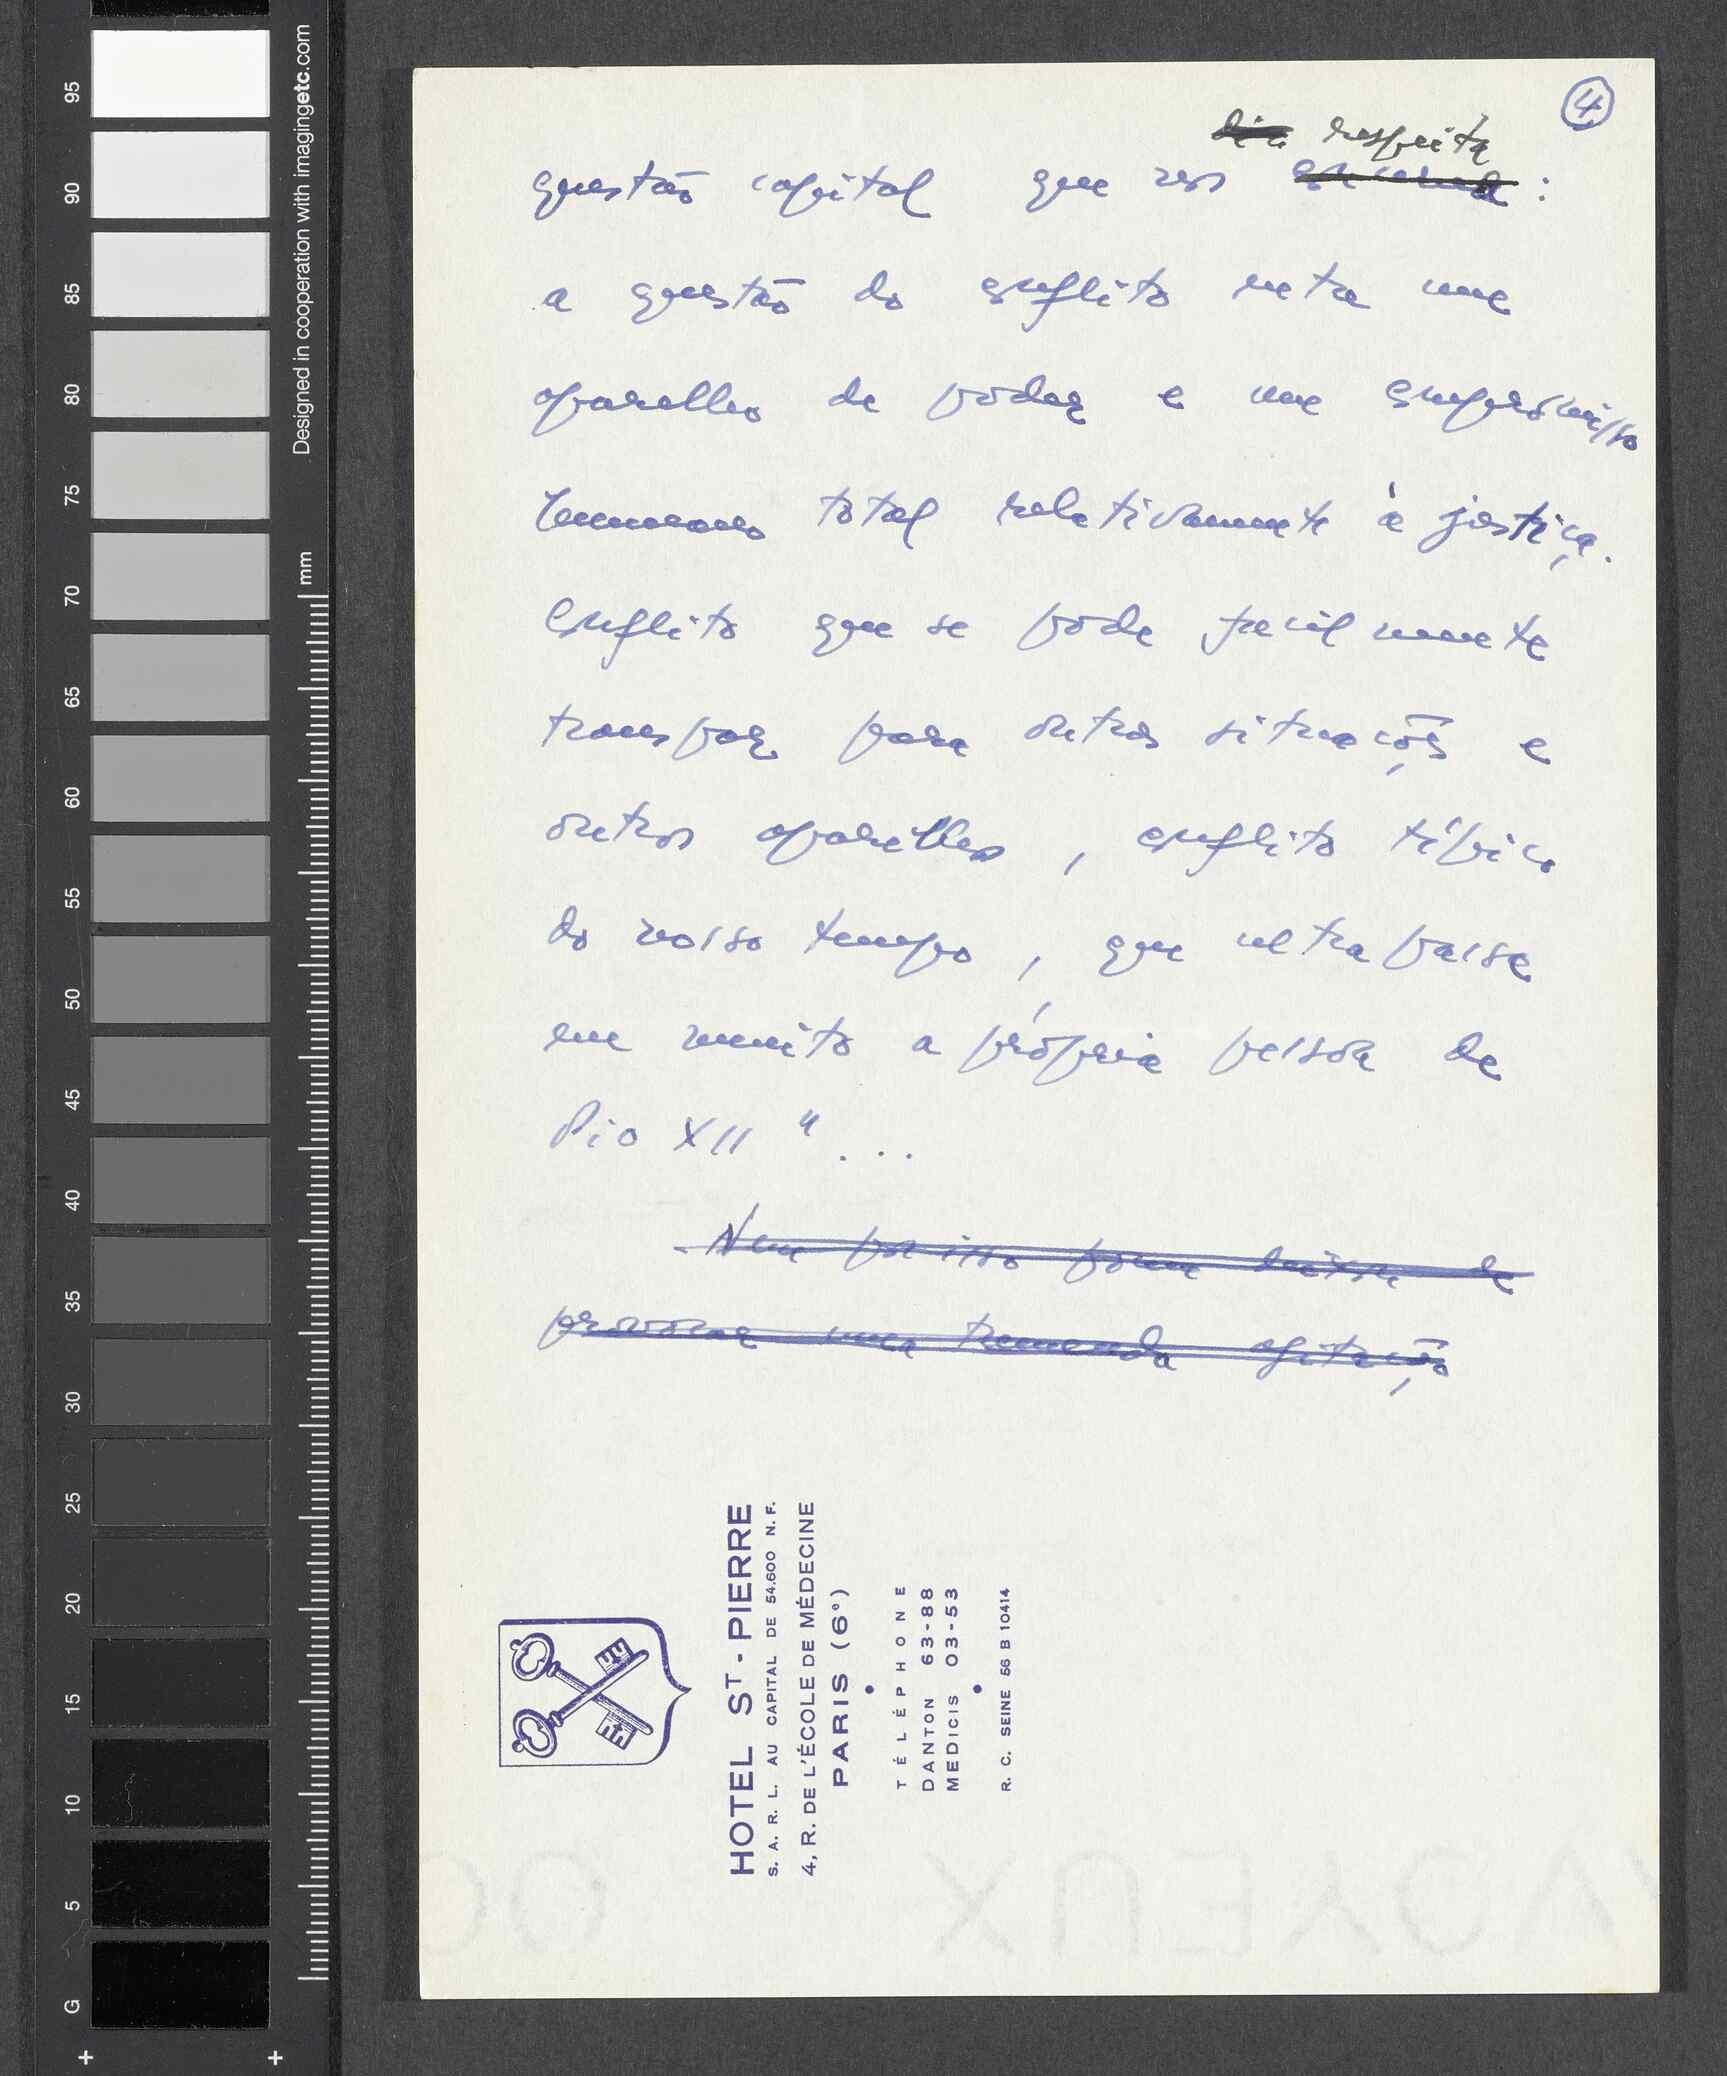 ④
~~diz~~ respeita
questão capital que nos ~~concerne~~ :
a questão do conflito entre um
aparelho de poder e um compromisso
humano total relativamente à justiça.
Conflito que se pode facilmente
transpor para outras situações e
outros aparelhos, conflito típico
do nosso tempo, que ultrapassa
em muito a própria pessoa de
Pio XII"...
~~Nem por isso porem deixou de~~
~~provocar uma tremenda agitação~~
HOTEL ST-PIERRE
S. A. R. L. AU CAPITAL DE 54.600 N. F.
4, R. DE L'ÉCOLE DE MÉDECINE
PARIS (6°)
•
TÉLÉPHONE
DANTON 63-88
MEDICIS 03-53
•
R. C. SEINE 56 B 10414
VOYEUX
Designed in cooperation with imagingetc.com
mm
95
90
85
80
75
70
65
60
55
50
45
40
35
30
25
20
15
10
5
G